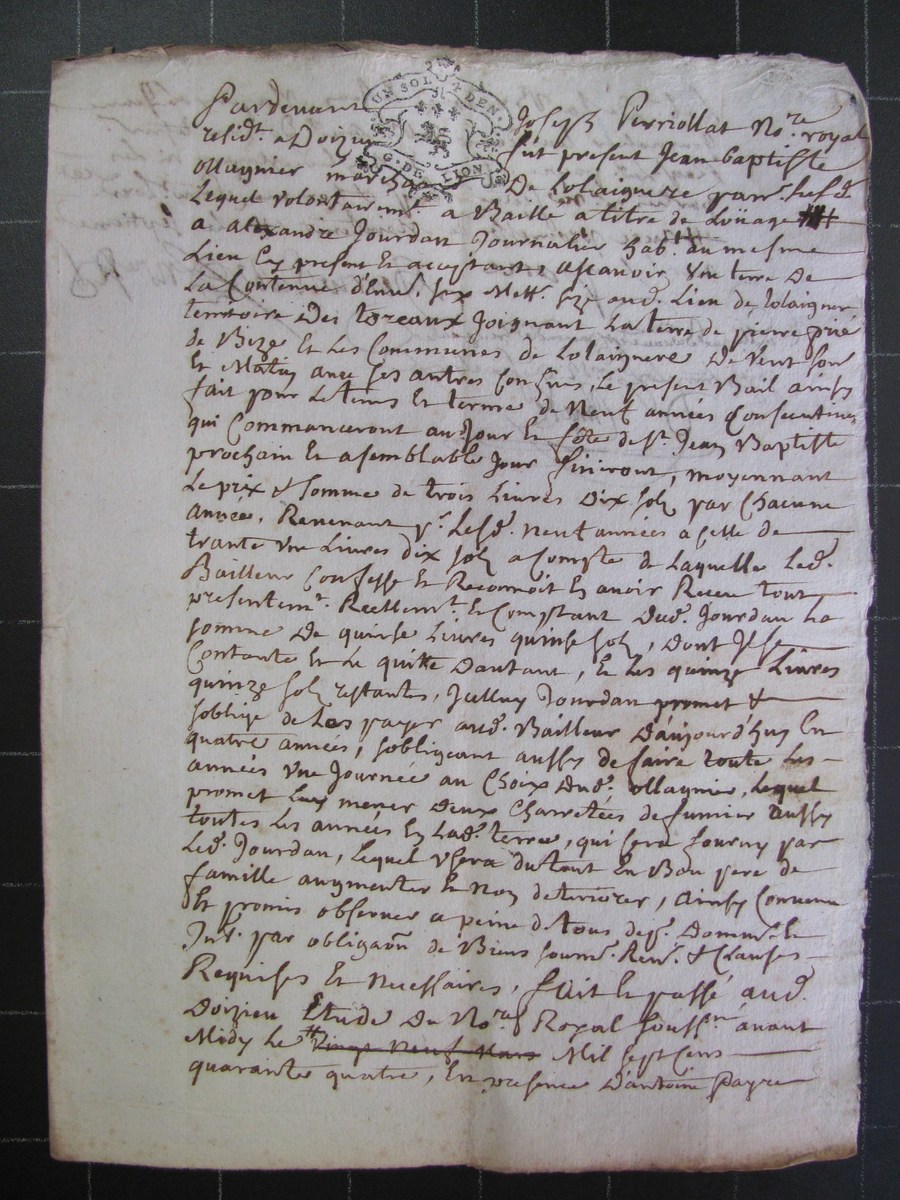 UN SOL 4 DEN.
G. DE LION
Pardevant Joseph Perriollat No.re royal
resid.t a Doizieu fut present Jean baptiste
ollagnier march.d De Lolaignere par.r Lesd.
Lequel volontairem.t a Baille a titre de Loüage
a alexandre Jourdan Journalier hab.t au mesme
Lieu Cy present Et acceptant, ascavoir Une terre De
La Contenue d'env.n six Mett. size aud. Lieu de lolaigner
territoire Des toreaux Joignant La terre de pierre prié
de Bize Et Les Communes de Lolaignere De Vent Soir
Et Matin avec Ses autres Confins Le present Bail ainsy
fait pour Le tems Et terme de Neuf années Consecutives
qui Commanceront au Jour Et fête de S.t Jean Baptiste
prochain Et a semblable Jour finiront, moyennant
Le prix & Somme de trois Livres Dix Solz par Chacune
année, Revenant p.r Lesd. neuf années a Celle de
trante une Livres dix Solz a Compte de Laquelle Led.
Bailleur Confesse Et Reconnoit En avoir Receu tout
presentem.t Reellem.t Et Comptant Dud. Jourdan La
Somme De quinse Livres quinse Solz, Dont Il Se
Contante Et Le quitte Dautant, Et Les quinze Livres
quinze Solz restantes, Icelluy Jourdan promet &
soblige de Les payer aud. Bailleur D'aujourd'huy En
quatre années, sobligeant aussy de faire toute Les
années Une Journée au Choix Dud. ollagnier, Lequel
promet Luy mener Deux Charretées de fumier aussy
toutes Les années En Lad. terre, qui Sera fourny par
Led. Jourdan, Lequel Usera du tout En Bon pere de
famille augmenter Et Non deteriorer, ainsy Convenu
Et promis observer a peine de tous dep. Domm. Et
Int. par obligaon de Biens Soum. Ren. & Clauses
Requises Et necessaires, fait Et passé aud.
Doizieu Etude Du No.re Royal Souss.né avant
Midy Le Vingt Neuf Mars Mil Sept Cens
quarante quatre, En presence D'antoine Payre